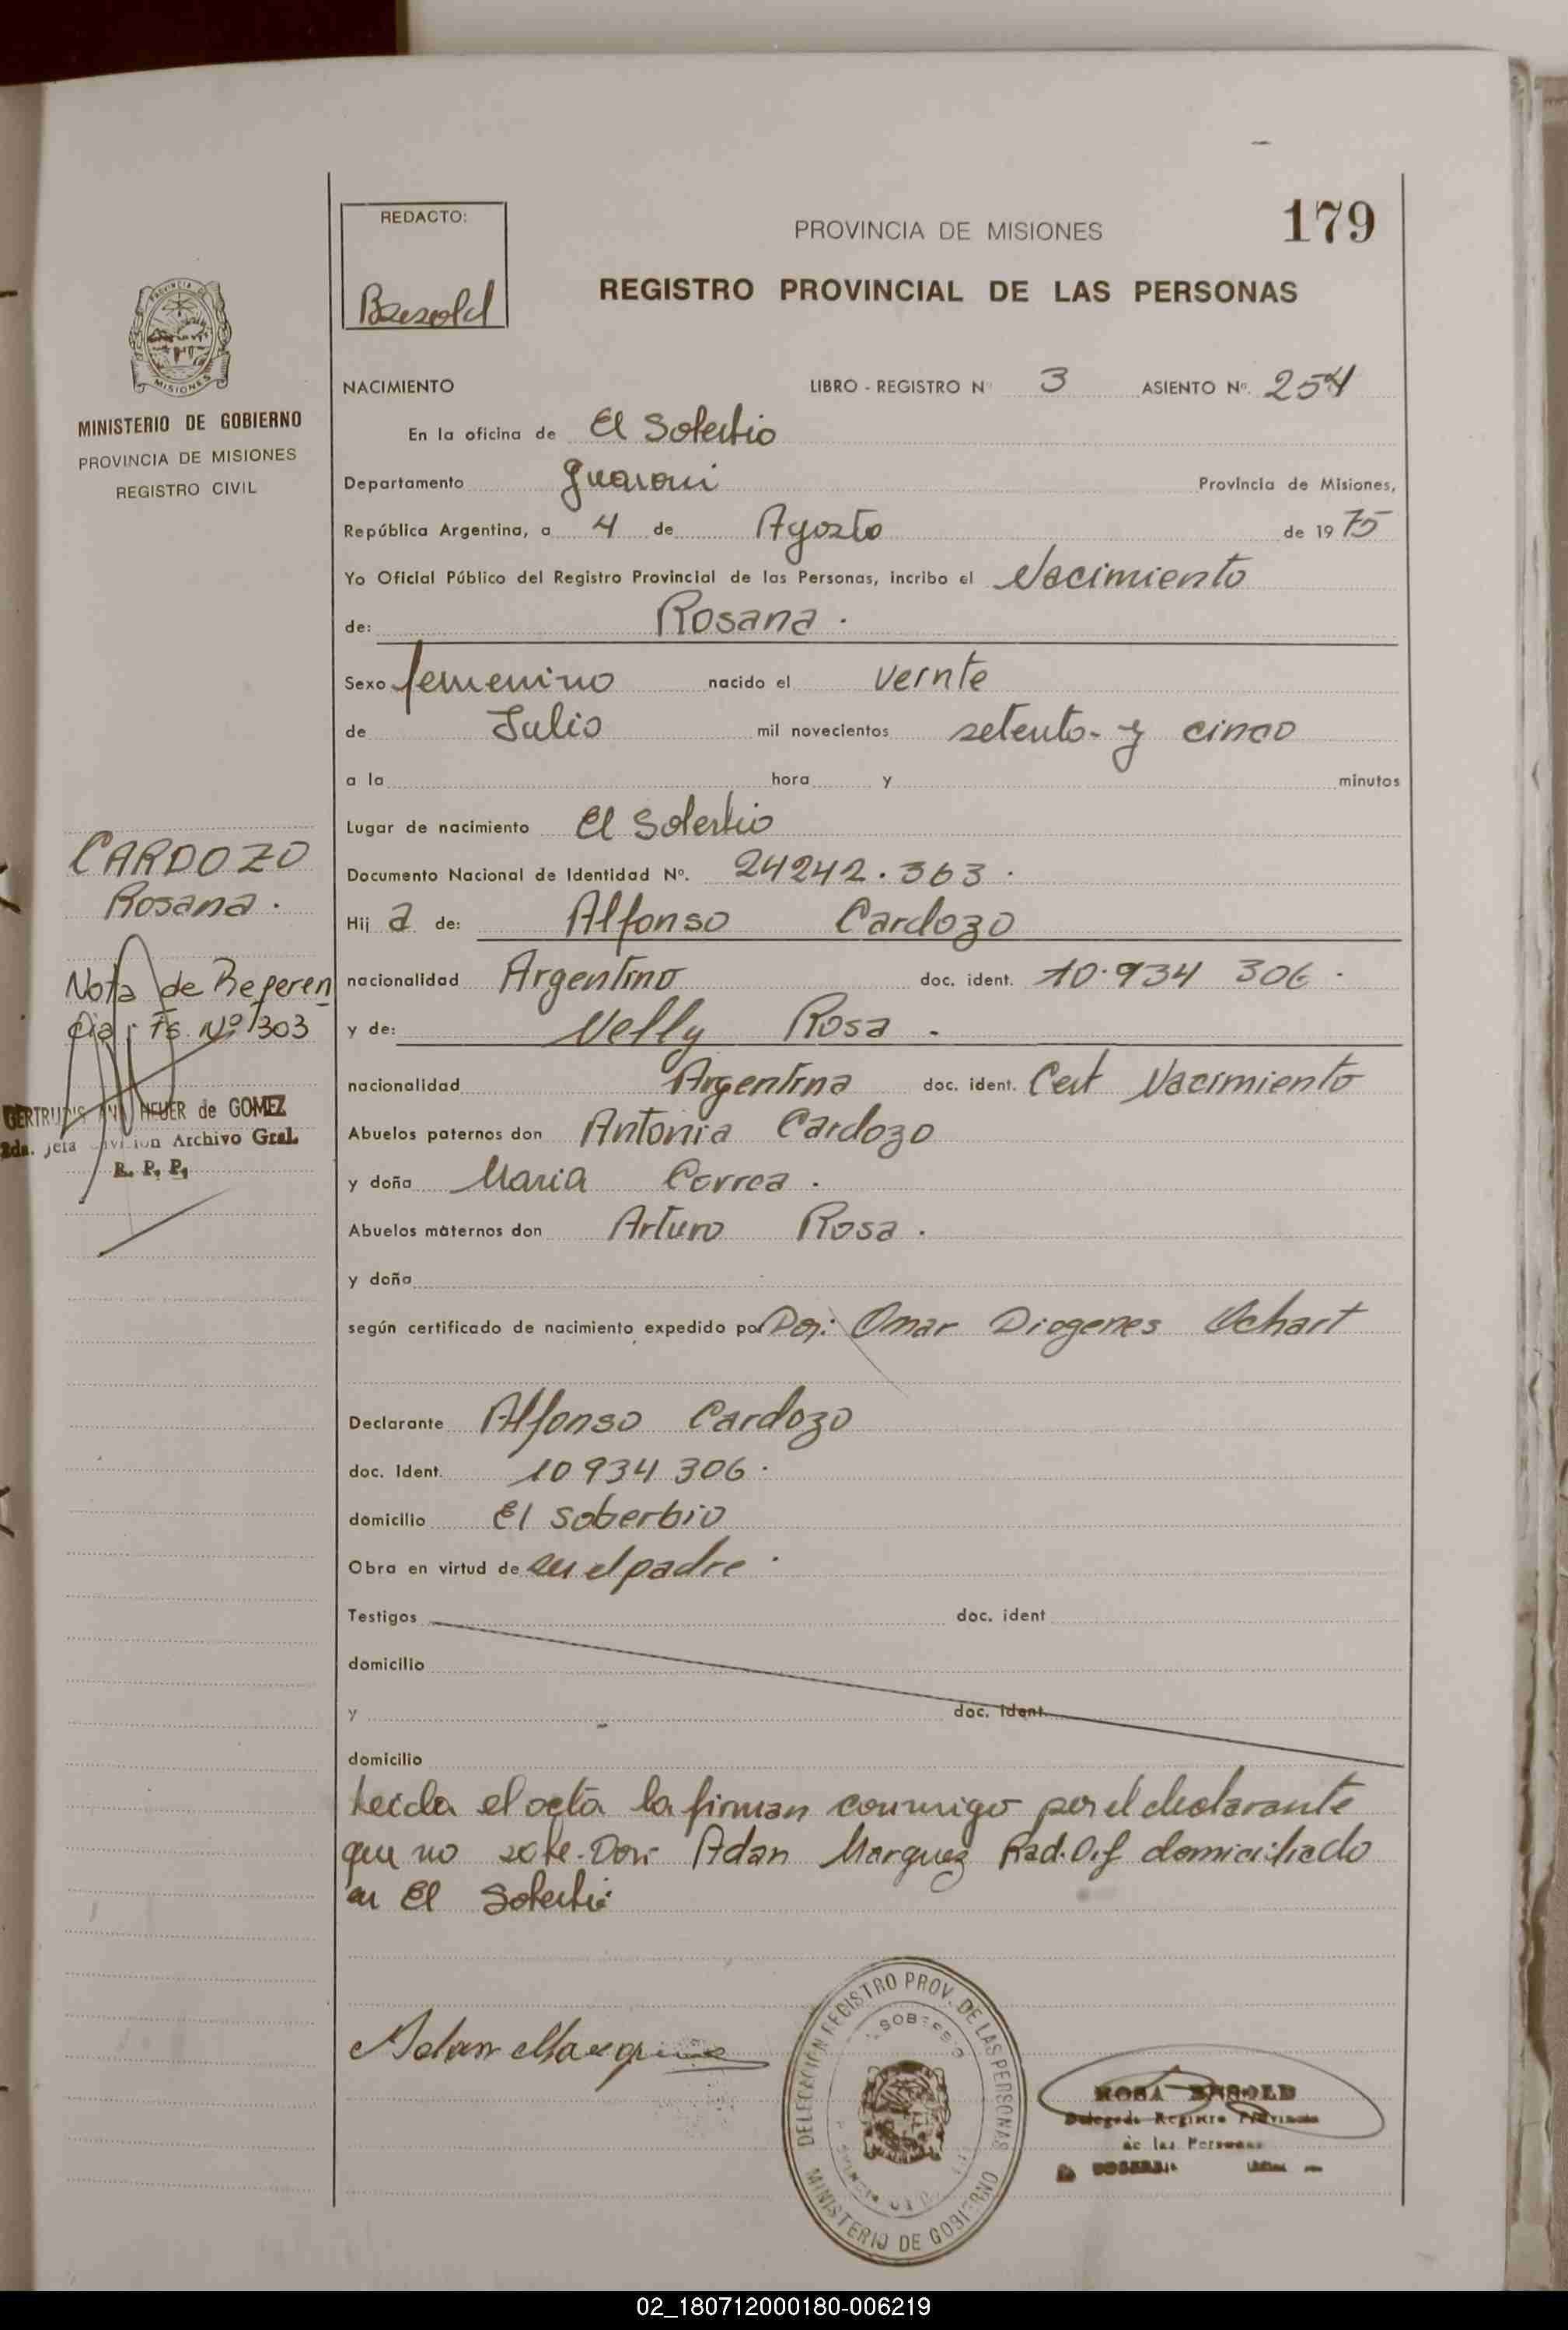 179
REDACTO:
PROVINCIA DE MISIONES
REGISTRO PROVINCIAL DE LAS PERSONAS
MISIONES
MINISTERIO DE GOBIERNO
PROVINCIA DE MISIONES
REGISTRO CIVIL
NACIMIENTO LIBRO - REGISTRO Nº 3 ASIENTO Nº. 254
En la oficina de El Soberbio
Departamento Guarani Provincia de Misiones,
República Argentina, a 4 de Agosto de 1975
Yo Oficial Público del Registro Provincial de las Personas, incribo el Nacimiento
de: Rosana.
Sexo femenino nacido el veinte
de Julio mil novecientos setenta y cinco
a la hora y minutos
Lugar de nacimiento El Soberbio
Documento Nacional de Identidad Nº. 24242.363.
CARDOZO
Rosana.
Hij a de: Alfonso Cardozo
nacionalidad Argentino doc. ident. 10.934 306.
Nota de Referen
cia: Fs Nº 303
y de: Nelly Rosa.
nacionalidad Argentina doc. ident. Cert Nacimiento
GERTRUDIS HEUER de GOMEZ
Archivo Gral.
R. P. P.
Abuelos paternos don Antonia Cardozo
y doña Maria Correa.
Abuelos maternos don Arturo Rosa.
y doña
según certificado de nacimiento expedido por Don: Omar Diogenes Ochart
Declarante Alfonso Cardozo
doc. Ident. 10 934 306.
domicilio El Soberbio
Obra en virtud de ser el padre.
Testigos doc. ident
domicilio
y doc. ident.
domicilio
Leida el acta la firman conmigo por el declarante
que no sabe Don Adan Marquez Rad. Of domiciliado
en El Soberbio
Adan Marquez
DELEGACIÓN REGISTRO PROV. DE LAS PERSONAS
SOBERBIO
MINISTERIO DE GOBIERNO
ROSA
Registro Provincial
de las Personas
02_180712000180-006219